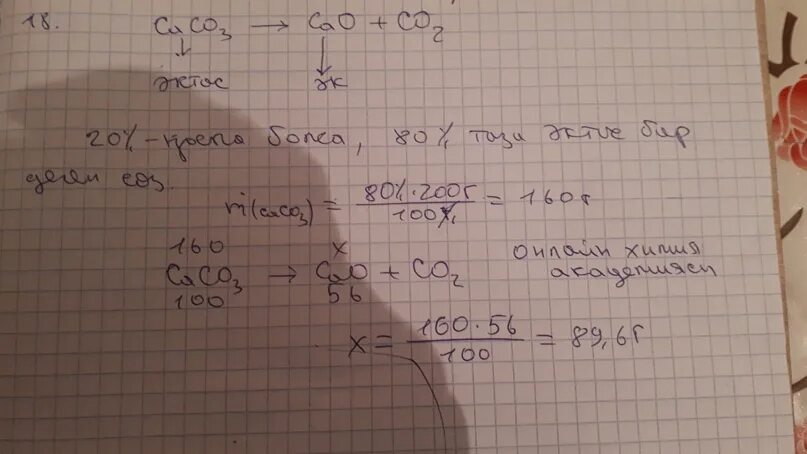 18. CaCO₃ → CaO + CO₂
↓ ↓
әктас әк
20% - қоспа болса, 80% таза әктас бар
деген сөз.
m(CaCO₃) = 80% · 200г / 100% = 160г
160 x
CaCO₃ → CaO + CO₂
100 56
онлайн химия
академиясы
x = 160 · 56 / 100 = 89,6г